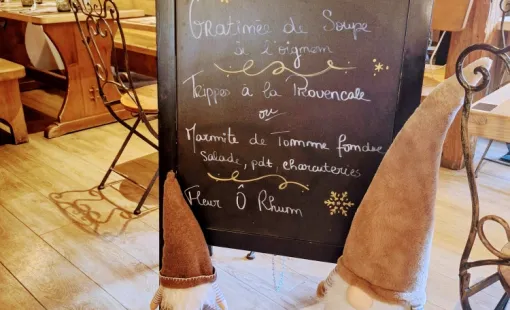 Gratinée de Soupe
à l'oignom
Trippes à la Provençale
ou
Marmite de Tomme fondue
Salade, pdt, charcuteries
Fleur Ô Rhum